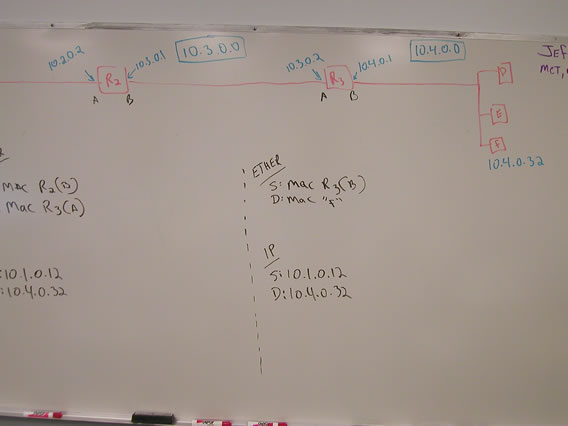 10.2.0.2
10.3.0.1
10.3.0.0
10.3.0.2
10.4.0.1
10.4.0.0
JEF
MCT,
R2
R3
D
A B
A B
E
F
10.4.0.32
ETHER
MAC R2(B)
MAC R3(A)
S: MAC R3(B)
D: MAC "F"
IP
:10.1.0.12
:10.4.0.32
S:10.1.0.12
D:10.4.0.32